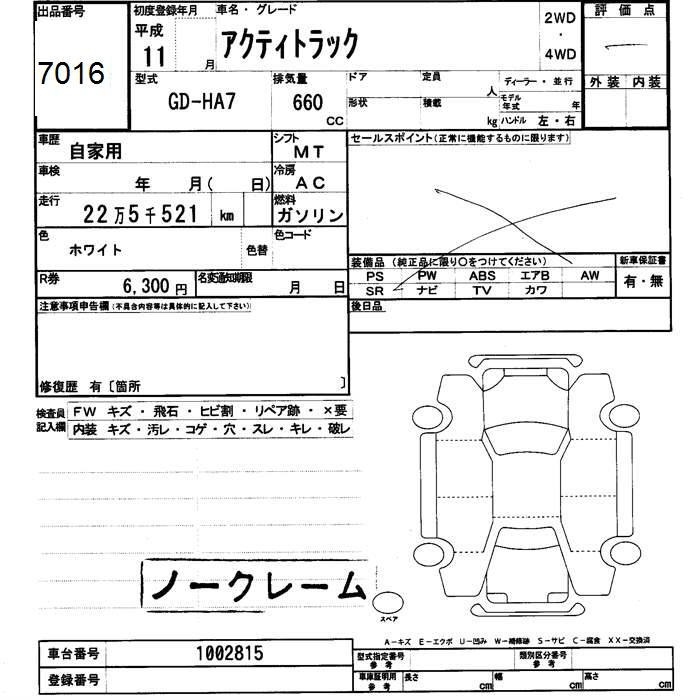 出品番号
7016
初度登録年月
平成
11 月
車名・グレード
アクティトラック
2WD
・
4WD
評価点
外装 内装
型式
GD-HA7
排気量
660
CC
ドア 定員 人
形状 積載 kg
ディーラー・並行
モデル年式 年
ハンドル 左・右
車歴
自家用
シフト
MT
車検
年 月( 日)
冷房
AC
走行
22万5千521 km
燃料
ガソリン
色
ホワイト 色替
色コード
R券
6,300円
名変通知期限
月 日
セールスポイント(正常に機能するものに限ります)
装備品(純正品に限り○をつけてください)
PS PW ABS エアB AW
SR ナビ TV カワ
新車保証書
有・無
後日品
注意事項申告欄(不具合内容等は具体的に記入して下さい)
修復歴 有〔箇所 〕
検査員記入欄
FW キズ・飛石・ヒビ割・リペア跡・×要
内装 キズ・汚レ・コゲ・穴・スレ・キレ・破レ
ノークレーム
スペア
A-キズ E-エクボ U-凹み W-補修跡 S-サビ C-腐食 XX-交換済
車台番号 1002815
登録番号
型式指定番号
参考
類別区分番号
参考
車庫証明用
参考
長さ cm 幅 cm 高さ cm